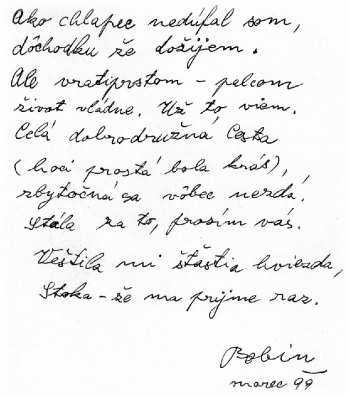 Ako chlapec nedúfal som,
dôchodku že dožijem.
Ale vratiprstom – palcom
život vládne. Už to viem.
Celá dobrodružná cesta
(hoci prostá bola krás),
zbytočná sa vôbec nezdá.
Stála za to, prosím vás.
Veštila mi šťastia hviezda,
Stoka – že ma prijme raz.
Bobin
marec 99